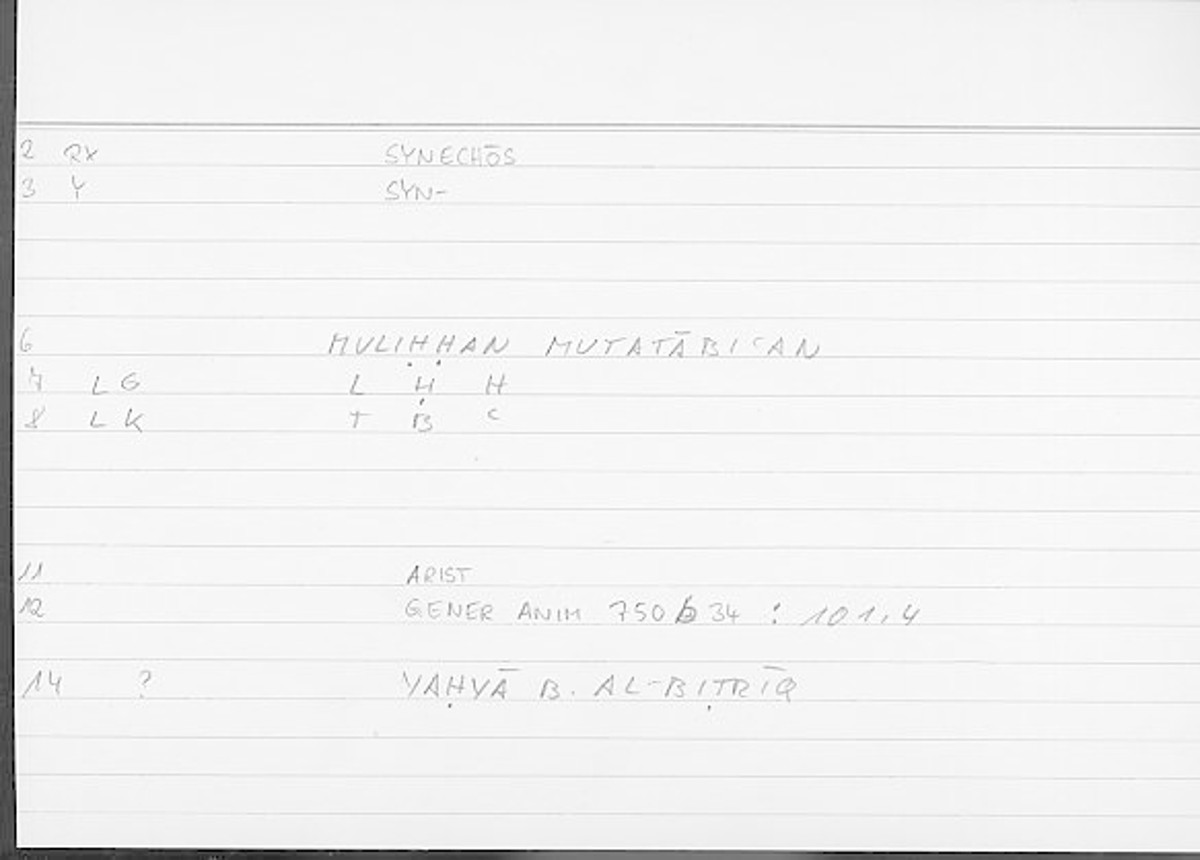 2 RX SYNECHŌS
3 Y SYN-
6 MULIḤḤAN MUTATĀBIʿAN
7 LG L Ḥ Ḥ
8 LK T B ʿ
11 ARIST
12 GENER ANIM 750 b 34 : 101,4
14 ? YAḤYĀ B. AL-BIṬRĪQ